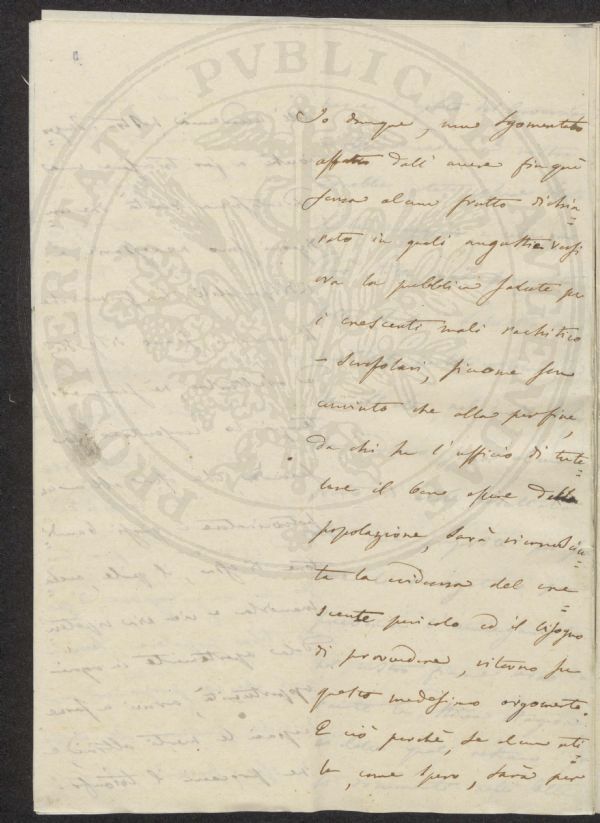 PROSPERITATI PUBLICAE
Io dunque, non sgomentato
affatto dall' avere finquì
senza alcun frutto dichia=
rato in quali angustie versi
ora la pubblica salute per
i crescenti mali rachitico
- scrofolari, siccome son
convinto che alla perfine,
da chi ha l' ufficio di tute=
lare il bene essere della
popolazione, sarà riconosciu=
ta la evidenza del cre=
scente pericolo ed il bisogno
di provvedere, ritorno su
questo medesimo argomento.
E ciò perchè, se alcun uti=
le, come spero, sarà per